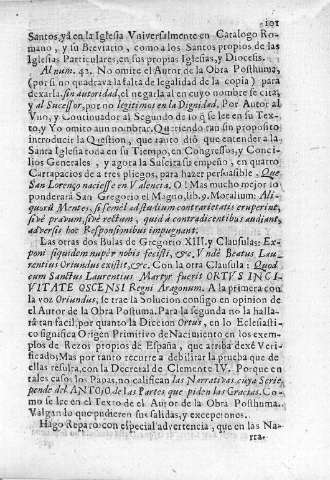 101
Santos, yà en la Iglesia Vniversalmente en Catalogo Ro-
mano, y su Breviario, como a los Santos propios de las
Iglesias Particulares, en sus propias Iglesias, y Diocesis.
Al num. 42. No omite el Autor de la Obra Posthuma,
(por si no quadrava la falta de legalidad de la copia) para
dexarla, sin autoridad, el negarla al en cuyo nombre se cita,
y al Sucessor, por no legitimos en la Dignidad. Por Autor al
Vno, y Continuador al Segundo de lo q̃ se lee en su Tex-
to, y Yo omito aun nombrar. Queriendo tan sin proposito
introducir la Question, que tanto diò que entender a la
Santa Iglesia toda en su Tiempo, en Congressos, y Conci-
lios Generales, y agora la Suscita su empeño, en quatro
Cartapacios de a tres pliegos, para hacer persuasible. Que
San Lorenço naciesse en Valencia. O! Mas mucho mejor lo
ponderarà San Gregorio el Magno, lib. 9. Moralium. Ali-
quorũ Mentes, si semel ad studium contrarietatis eruperint,
sivè pravum, sivè rectum, quid à contradicentibus audiant,
adversis hoc Responsionibus impugnant.
Las otras dos Bulas de Gregorio XIII. y Clausulas: Ex-
poni siquidem nuper nobis fecisti, &c. Vndè Beatus Lau-
rentius Oriundus existit, &c. Con la otra Clausula: Quod
cum Sanctus Laurentius Martyr fuerit ORTVS IN CI-
VITATE OSCENSI Regni Aragonum. A la primera con
la voz Oriundus, se trae la Solucion contigo en opinion de
el Autor de la Obra Postuma. Para la segunda no la halla-
rà tan facil, por quanto la Diccion Ortus, en lo Ecclesiasti-
co significa Origen Primitivo de Nacimiento en los exem-
plos de Rezos propios de España, que arriba dexè Verifi-
cados; Mas por tanto recurre a debilitar la prueba que de
ellas resulta, con la Decretal de Clemente IV. Porque en
tales casos los Papas, no califican las Narrativas, cuya Serie
pende del ANTOJO de las Partes que piden las Gracias. Co-
mo se lee en el Texto de el Autor de la Obra Posthuma.
Valgan lo que pudieren sus salidas, y excepciones.
Hago Reparo con especial advertencia, que en las Na-
rra-